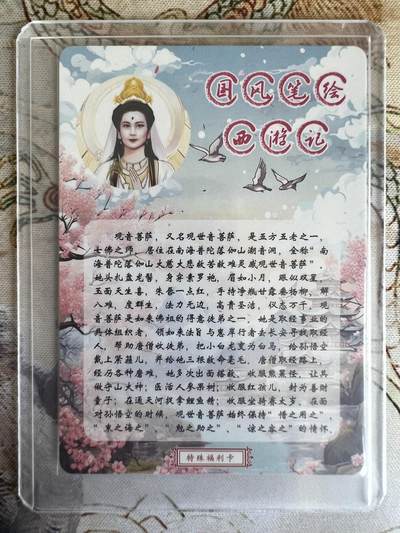 国风笔绘
西游记
观音菩萨，又名观世音菩萨，是五方五老之一，
七佛之师，居住在南海普陀落伽山潮音洞，全称“南
海普陀落伽山大慈大悲救苦救难灵感观世音菩萨”，
她头扎盘龙髻，身穿素罗袍，眉如小月，眼似双星，
玉面天生喜，朱唇一点红，手持净瓶甘露垂杨柳，解
八难，度群生，法力无边，高贵圣洁，仪态万千。观
世音菩萨是如来佛祖的得意徒弟之一。她是取经事业的
具体组织者，领如来法旨与惠岸行者去长安寻找取经
人，帮助唐僧收徒弟，把小白龙变为白马，给孙悟空
戴上紧箍儿，并给他三根救命毫毛，唐僧取经路上，
经历各种磨难，她多次出面搭救，收服熊罴怪，让其
做守山大神；医活人参果树；收服红孩儿，封为善财
童子；在通天河获拿鲤鱼精；收服金毛犼太岁，在面
对孙悟空的时候，观世音菩萨始终保持“惜之用之”、
“束之诲之”、“勉之助之”、“谅之容之”的情怀。
特殊福利卡